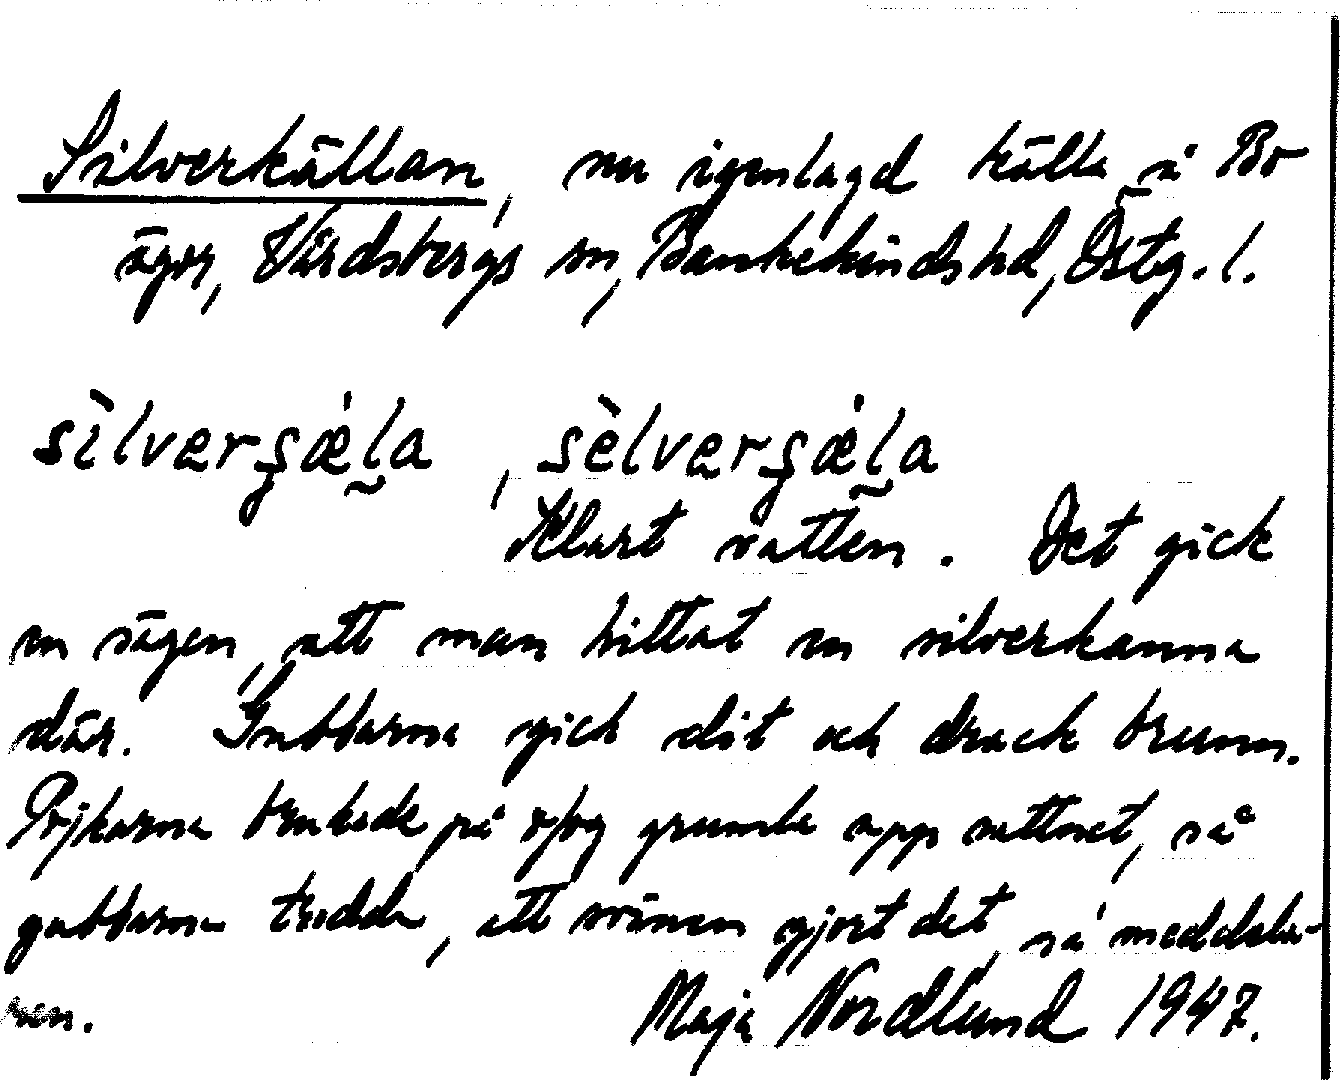 Silverkällan, nu igenlagd källa på Bo
ägor, Vårdsbergs sn, Bankekinds hd, Östg. l.
sìlverʂǽla̰, sèlverʂǽla̰
Klart vatten. Det gick
en sägen, att man hittat en silverkanna
där. Gubbarna gick dit och drack brunn.
Pojkarna brukade på spe grumla upp vattnet, så
gubbarna trodde, att svinen gjort det, så meddela-
ren. Maja Nordlund 1947.